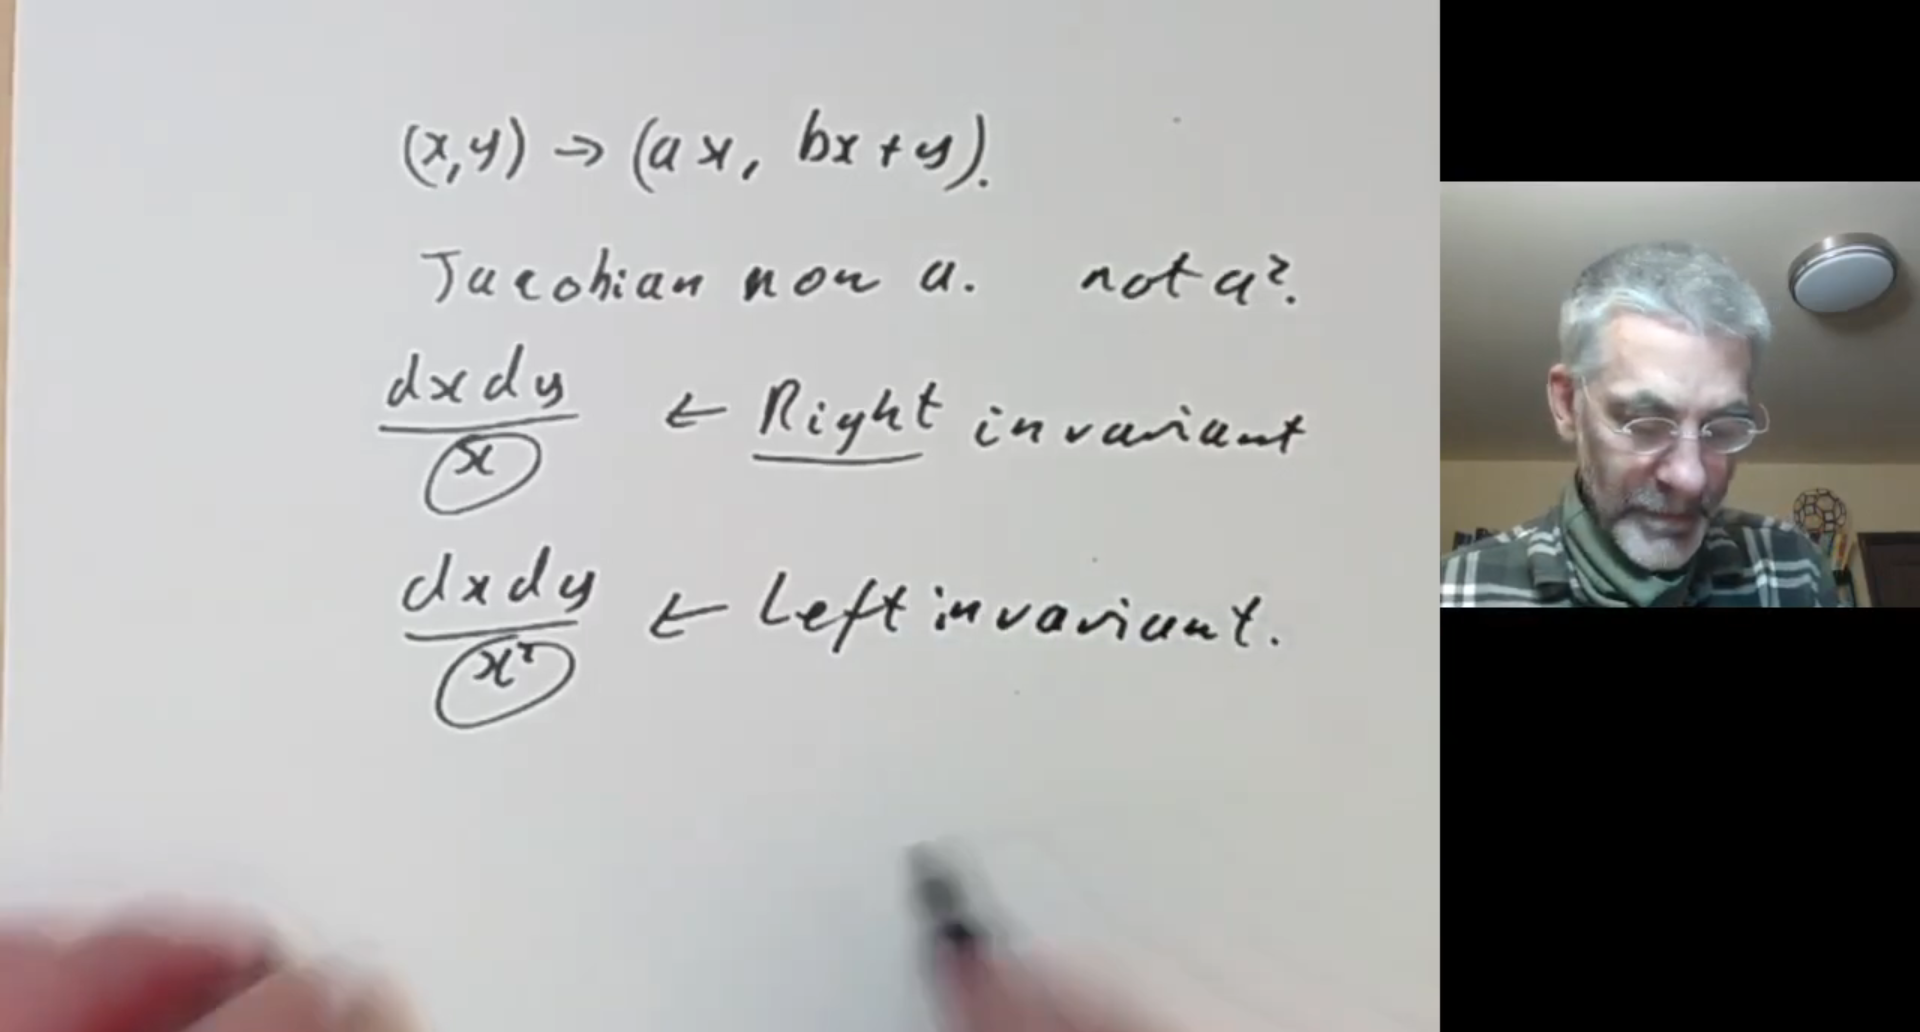 (x,y) → (ax, bx+y).
Jacobian now a. not a².
dxdy
x ← Right invariant
dxdy
x² ← Left invariant.